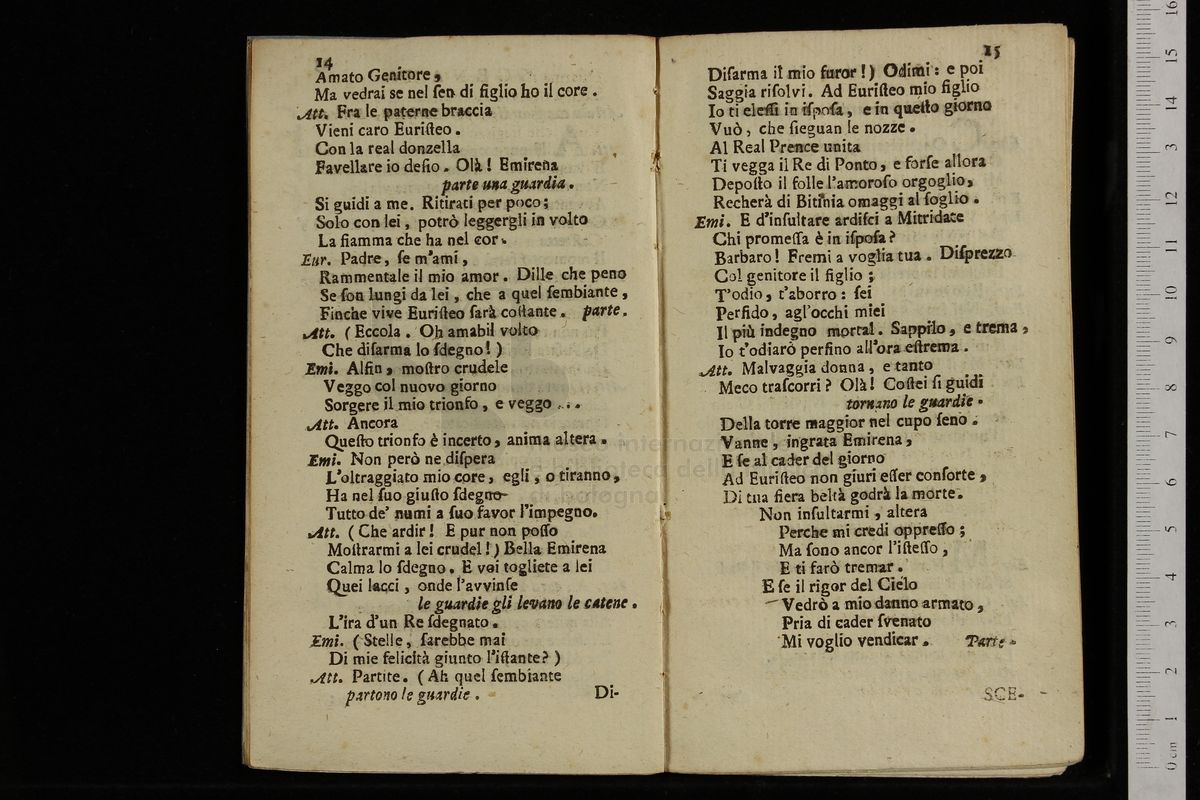 14
Amato Genitore,
Ma vedrai se nel ſen di figlio ho il core.
Att. Fra le paterne braccia
Vieni caro Euriſteo.
Con la real donzella
Favellare io deſio. Olà! Emirena
parte una guardia.
Si guidi a me. Ritirati per poco;
Solo con lei, potrò leggergli in volto
La fiamma che ha nel cor.
Eur. Padre, ſe m'ami,
Rammentale il mio amor. Dille che peno
Se ſon lungi da lei, che a quel ſembiante,
Finche vive Euriſteo ſarà coſtante. parte.
Att. (Eccola. Oh amabil volto
Che diſarma lo ſdegno!)
Emi. Alfin, moſtro crudele
Veggo col nuovo giorno
Sorgere il mio trionfo, e veggo ...
Att. Ancora
Queſto trionfo è incerto, anima altera.
Emi. Non però ne diſpera
L'oltraggiato mio core, egli, o tiranno,
Ha nel ſuo giuſto ſdegno
Tutto de' numi a ſuo favor l'impegno.
Att. (Che ardir! E pur non poſſo
Moſtrarmi a lei crudel!) Bella Emirena
Calma lo ſdegno. E voi togliete a lei
Quei lacci, onde l'avvinſe
le guardie gli levano le catene.
L'ira d'un Re ſdegnato.
Emi. (Stelle, ſarebbe mai
Di mie felicità giunto l'iſtante?)
Att. Partite. (Ah quel ſembiante
partono le guardie.
Di-
15
Diſarma il mio furor!) Odimi: e poi
Saggia riſolvi. Ad Euriſteo mio figlio
Io ti eleſſi in iſpoſa, e in queſto giorno
Vuò, che ſieguan le nozze.
Al Real Prence unita
Ti vegga il Re di Ponto, e forſe allora
Depoſto il folle l'amoroſo orgoglio,
Recherà di Bitinia omaggi al ſoglio.
Emi. E d'inſultare ardiſci a Mitridate
Chi promeſſa è in iſpoſa?
Barbaro! Fremi a voglia tua. Diſprezzo
Col genitore il figlio;
T'odio, t'aborro: ſei
Perfido, agl'occhi miei
Il più indegno mortal. Sappilo, e trema,
Io t'odiarò perfino all'ora eſtrema.
Att. Malvaggia donna, e tanto
Meco traſcorri? Olà! Coſtei ſi guidi
tornano le guardie.
Della torre maggior nel cupo ſeno.
Vanne, ingrata Emirena,
E ſe al cader del giorno
Ad Euriſteo non giuri eſſer conſorte,
Di tua fiera beltà godrà la morte.
Non inſultarmi, altera
Perche mi credi oppreſſo;
Ma ſono ancor l'iſteſſo,
E ti farò tremar.
E ſe il rigor del Cielo
Vedrò a mio danno armato,
Pria di cader ſvenato
Mi voglio vendicar. Parte.
SCE-